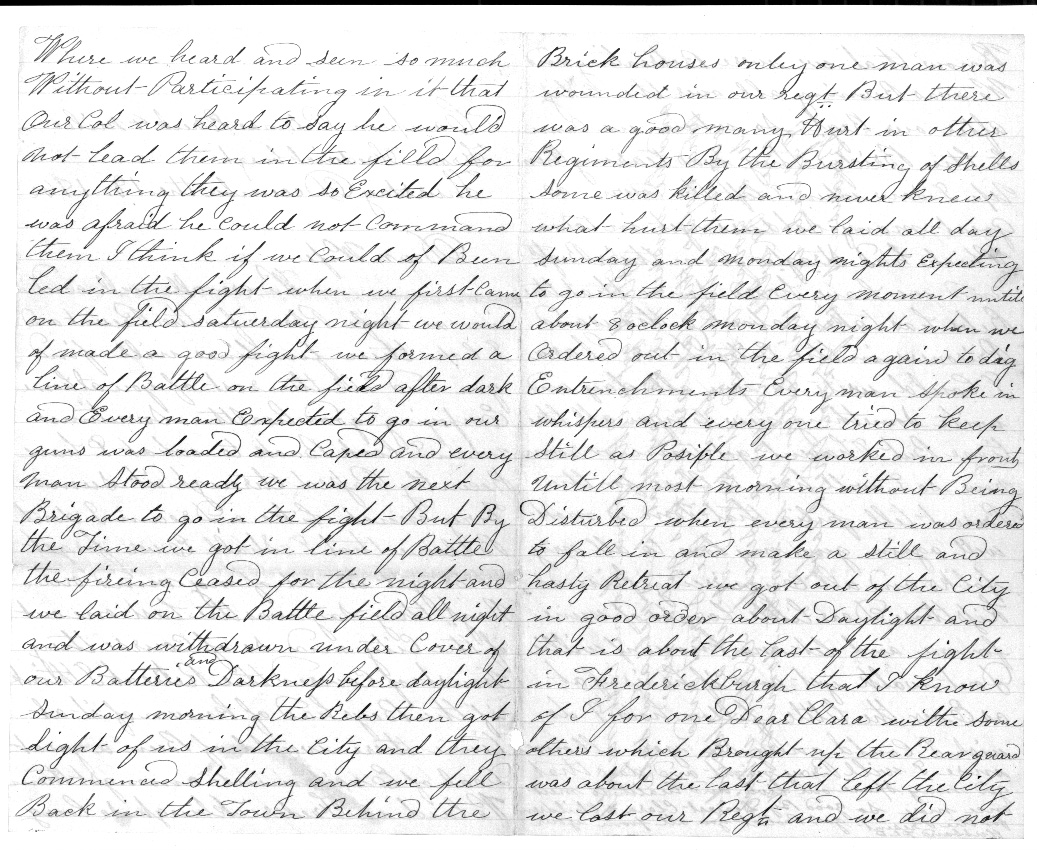 Where we heard and seen so much
Without Participating in it that
Our Col was heard to say he would
not lead them in the field for
anything they was so Excited he
was afraid he could not Command
them I think if we could of Been
Led in the fight when we first Came
on the field saturday night we would
of made a good fight we formed a
line of Battle on the field after dark
and Every man Expected to go in our
guns was loaded and Caped and every
man stood ready we was the next
Brigade to go in the fight But By
the Time we got in line of Battle
the fireing Ceased for the night and
we laid on the Battle field all night
and was withdrawn under Cover of
our Batteries and Darkness before daylight
Sunday morning the Rebs then got
sight of us in the City and they
Commenced shelling and we fell
Back in the Town Behind the
Brick houses onley one man was
wounded in our regt But there
was a good many Hurt in other
Regiments By the Bursting of Shells
some was killed and never knew
what hurt them we laid all day
sunday and monday nights Expecting
to go in the field Every moment untill
about 8 oclock monday night when we
Ordered out in the field again to dig
Entrenchments Every man spoke in
whispers and every one tried to keep
still as Posible we worked in front
Untill most morning without Being
Disturbed when every man was ordered
to fall in and make a still and
hasty Retreat we got out of the City
in good order about Daylight and
that is about the last of the fight
in Frederickburgh that I know
of I for one Dear Clara withe some
others which Brought up the Rear guard
was about the last that left the City
we lost our Regt and we did not